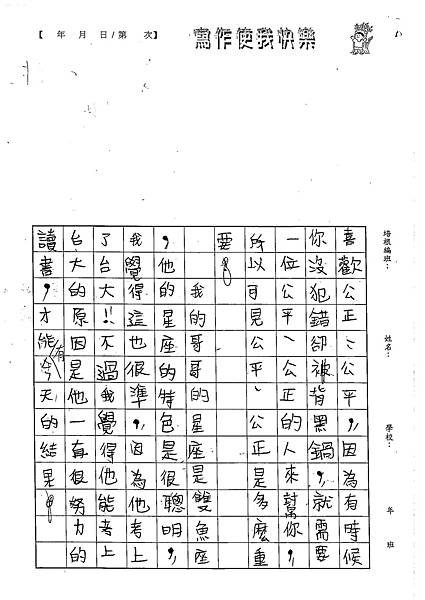 【 年 月 日/第 次】
寫作使我快樂
培根編班：
姓名：
學校：
年 班
喜歡公正、公平，因為有時候
你沒犯錯卻被背黑鍋，就需要
一位公平、公正的人來幫你，
所以可見公平、公正是多麼重
要。
我的哥哥的星座是雙魚座
，他的星座的特色是很聰明，
我覺得這也很準，因為他考上
了台大!!不過我覺得他能考上
台大的原因是他一直很努力的
讀書，才能有今天的結果。